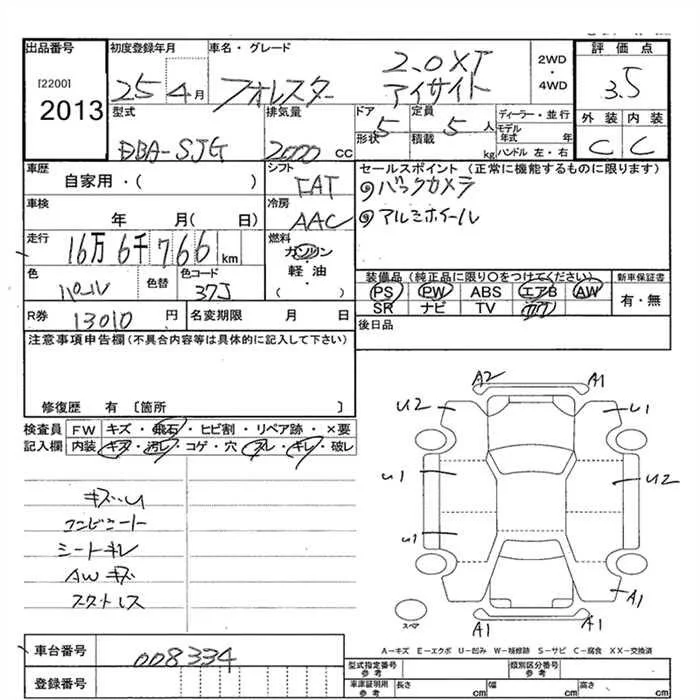 出品番号
[2200]
2013
初度登録年月
25 4月
車名・グレード
フォレスター
2.0XT
アイサイト
2WD
・
4WD
評価点
3.5
外装 内装
C C
型式
DBA-SJG
排気量
2000 cc
ドア
5
形状
定員
5 人
積載
kg
ディーラー・並行
モデル年式 年
ハンドル 左・右
車歴
自家用・( )
シフト
FAT
車検
年 月( 日)
冷房
AAC
走行
16万6千766 km
燃料
ガソリン
・
軽油
( )
色
パール
色替
色コード
37J
R券 13010 円
名変期限 月 日
セールスポイント (正常に機能するものに限ります)
バックカメラ
アルミホイール
装備品 (純正品に限り○をつけてください)
PS PW ABS エアB AW
SR ナビ TV カワ
新車保証書
有・無
後日品
注意事項申告欄(不具合内容等は具体的に記入して下さい)
修復歴 有 〔箇所 〕
検査員記入欄
FW キズ・飛石・ヒビ割・リペア跡・×要
内装 キズ・汚レ・コゲ・穴・スレ・キレ・破レ
キズ・U
コンビシート
シートキレ
AWキズ
スタットレス
A2 A1
U2 U1
U1 U2
U1
A1
A1 A1
スペア
A－キズ E－エクボ U－凹み W－補修跡 S－サビ C－腐食 XX－交換済
車台番号
008334
登録番号
型式指定番号
参考
類別区分番号
参考
車庫証明用
参考
長さ cm
幅 cm
高さ cm